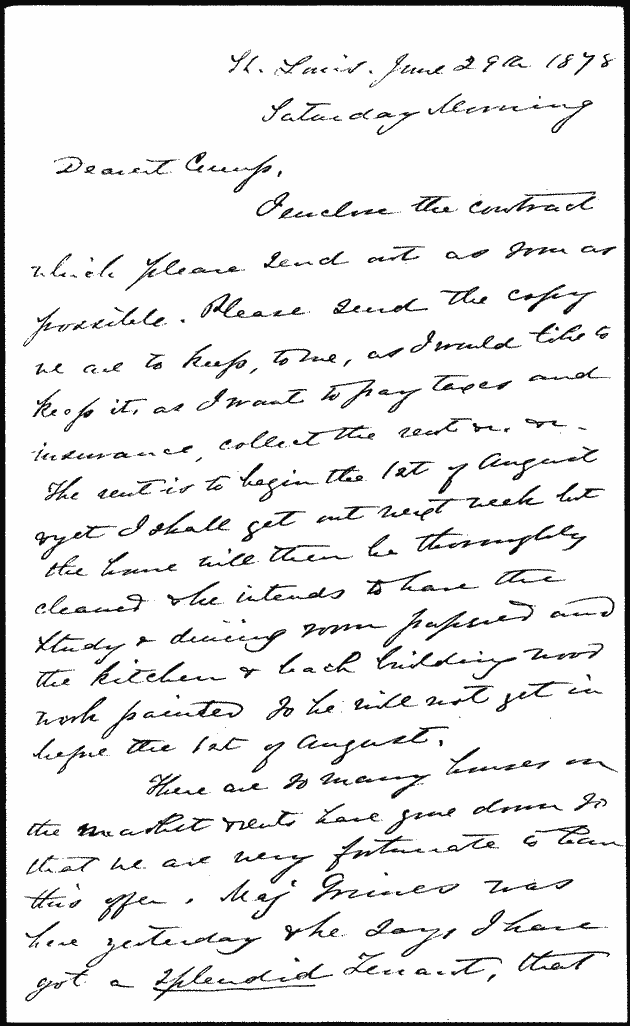 St. Louis. June 29th 1878
Saturday Morning
Dearest Cump,
I enclose the contract
which please send out as soon as
possible. Please send the copy
we are to keep, to me, as I would like to
keep it, as I want to pay taxes and
insurance, collect the rent &c. &c.
The rent is to begin the 1st of August
& yet I shall get out next week but
the house will then be thoroughly
cleaned & he intends to have the
study & dining room papered and
the kitchen & back building wood
work painted so he will not get in
before the 1st of August.
There are so many houses on
the market & rents have gone down so
that we are very fortunate to have
this offer. Maj Grimes was
here yesterday & he says, I have
got a splendid Tenant, that